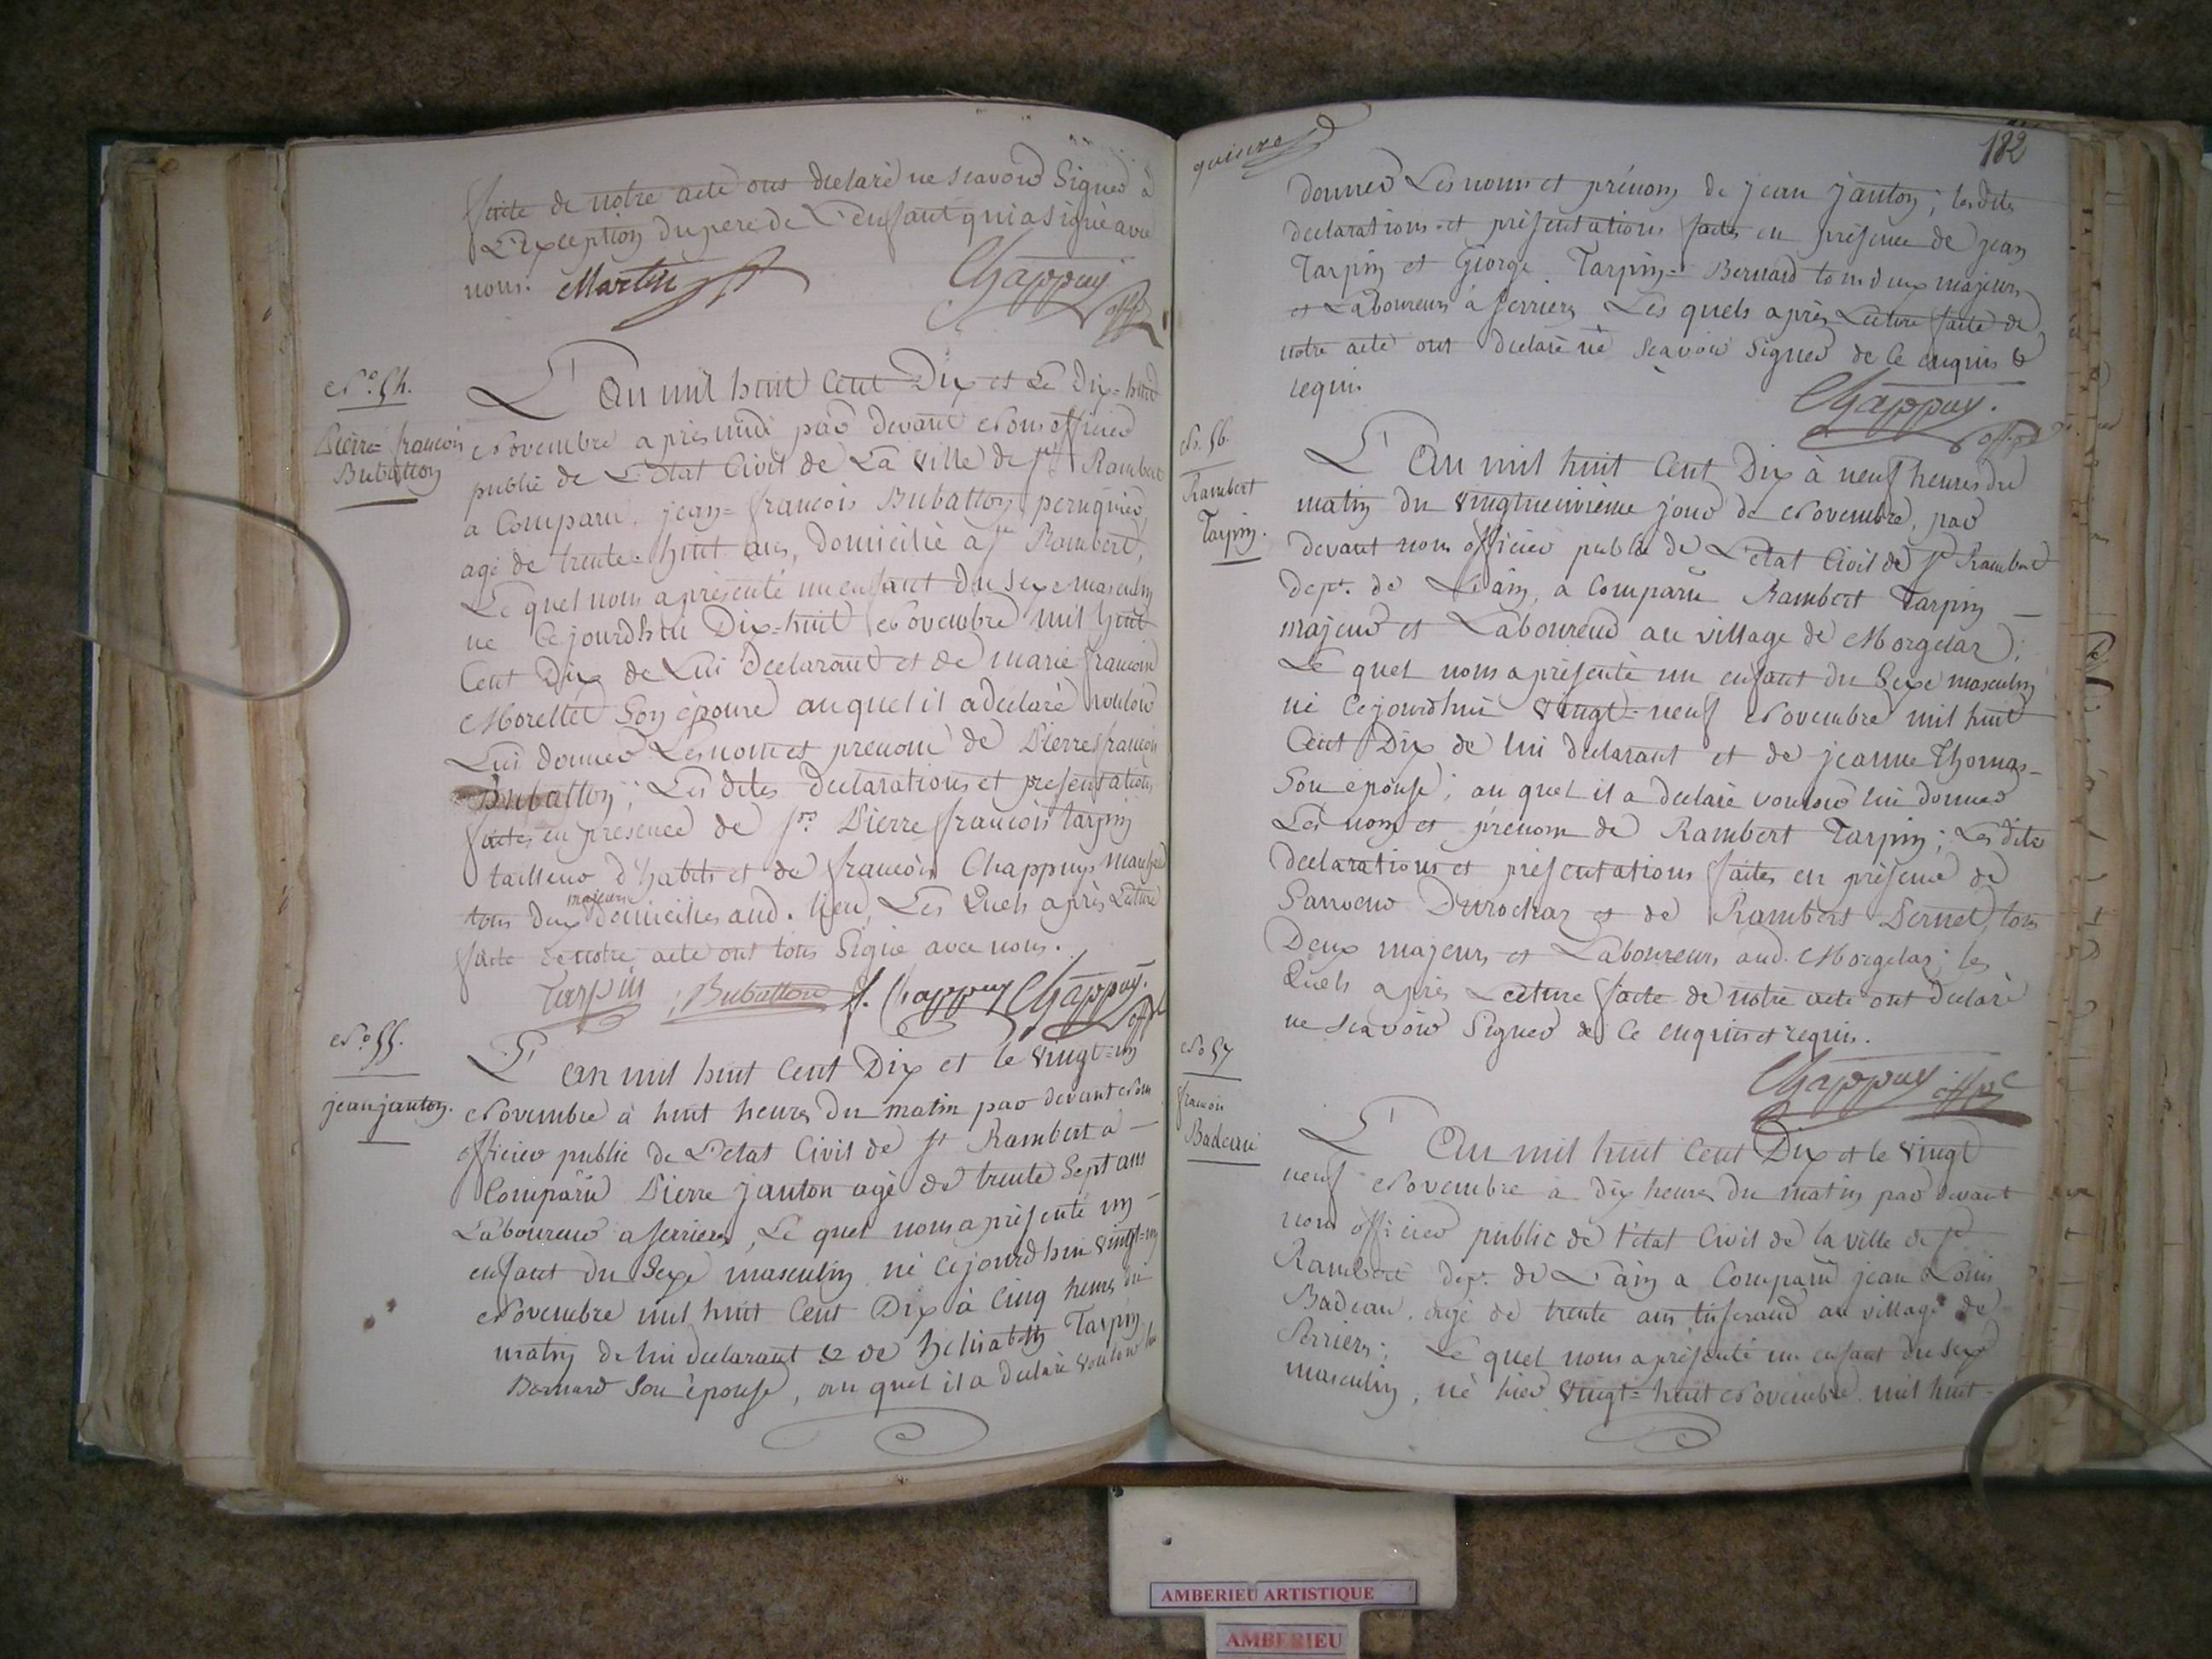 faite de notre acte ont declaré ne scavoir Signer à
L'Exception du pere de L'enfant qui a signé avec
nous. Martin Chappuy off. p.
N.o 54.
Pierre = françois
Bubatton
L'An mil huit Cent Dix et Le Dix = huit
Novembre apres midi par devant Nous officier
public de L'Etat Civil de La Ville de st Rambert
a Comparu, jean = françois Bubatton peruquier,
agé de trente = huit ans, domicilié a st Rambert,
Le quel nous a présenté un enfant du sexe masculin
né Ce jourdhui Dix = huit Novembre mil huit
Cent Dix de Lui Declarant et de marie françoise
Morellet Son épouse auquel il a declaré vouloir
Lui donner Les nom et prenom de Pierre françois
Bubatton; Les dites Declarations et presentations
faites en presence de srs Pierre françois tarpin
tailleur d'habits et de françois Chappuys
tous deux majeurs domiciliés aud. lieu, Les Quels après Lecture
faite de notre acte ont tous Signé avec nous.
Tarpin Bubatton f. Chappuy Chappuy. off
N.o 55.
jean janton.
L'an mil huit Cent Dix et le Vingt = un
Novembre à huit heures du matin par devant Nous
officier public de L'etat Civil de st Rambert a
Comparu Pierre janton agé de trente Sept ans
Laboureur a serrieres, Le quel nous a présenté un
enfant du Sexe masculin né Cejourdhui Vingt = un
Novembre mil huit Cent Dix à Cinq heures du
matin de lui declarant & de Tarpin
Bernard Son épouse, au quel il a declaré vouloir lui
182
donner Les noms et prénoms de jean janton; les dites
declarations et présentations faites en présence de jean
Tarpin et George Tarpin = Bernard tous deux majeurs
et Laboureurs à serrieres Les quels après Lecture faite de
notre acte ont declaré ne scavoir Signer de Ce enquis &
requis.
Chappuy. off. p.
No. 56.
Rambert
Tarpin.
L'An mil huit Cent Dix à neuf heures du
matin du Vingtneuvieme jour de Novembre, par
devant nous officier public de L'etat Civil de st Rambert
dept. de L'ain, a Comparu Rambert Tarpin
majeur et Laboureur au village de Morgelaz;
Le quel nous a présenté un enfant du Sexe masculin
né Cejourdhui Vingt = neuf Novembre mil huit
Cent Dix de lui declarant et de jeanne Thomas
Son epouse; au quel il a declaré vouloir lui donner
Les nom et prénom de Rambert Tarpin; Les dites
declarations et présentations faites en présence de
Durochaz et de Rambert Pernet, tous
Deux majeurs et Laboureurs aud. Morgelaz; les
Quels après Lecture faite de notre acte ont declaré
ne scavoir Signer de Ce enquis et requis.
Chappuy off pc
No 57
françois
Badeau
L'An mil huit Cent Dix et le Vingt
neuf Novembre à dix heures du matin par devant
nous officier public de l'etat Civil de la ville de st
Rambert dept. de L'ain a Comparu jean Louis
Badeau, agé de trente ans tisserand au village de
Serrieres; Le quel nous a présenté un enfant du sexe
masculin, né hier Vingt = huit Novembre mil huit =
AMBERIEU ARTISTIQUE
AMBERIEU